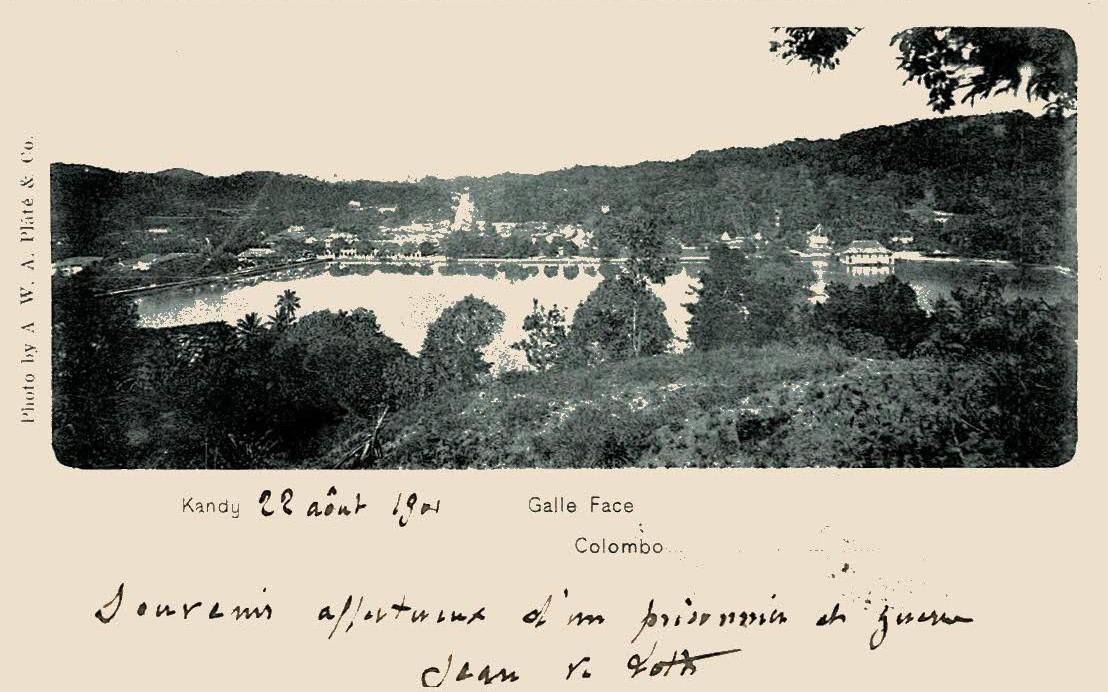 Photo by A. W. A. Plâté & Co.
Kandy 22 aôut 1901 Galle Face
Colombo
Souvenir affectueux d'un prisonnier de guerre
Jean v.